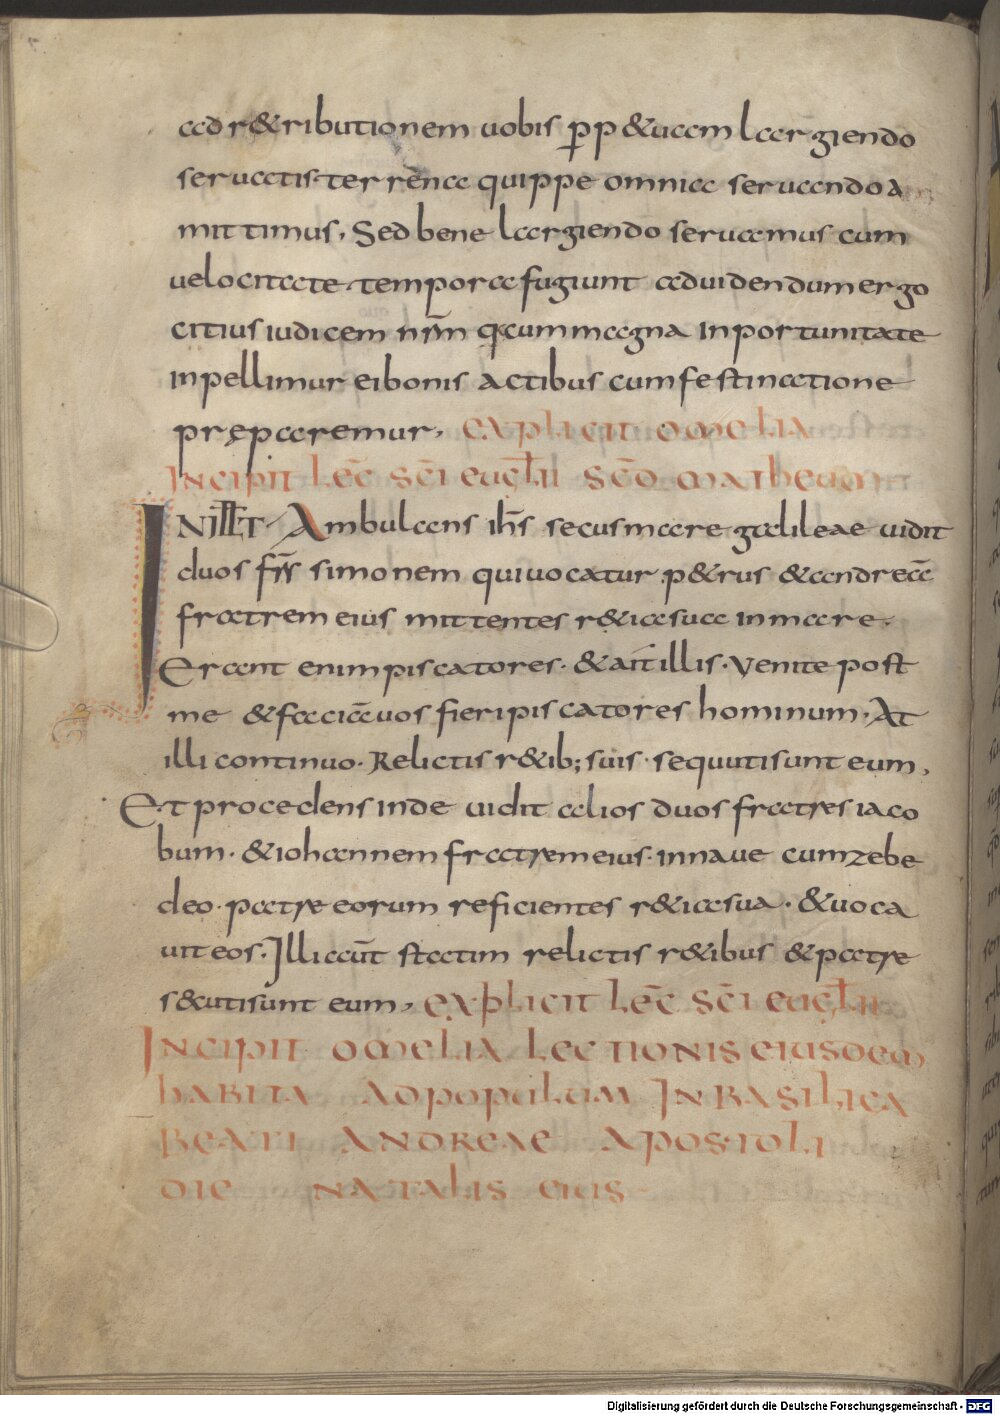 ad r&ributionem uobis pp&uam largiendo
seruatis· terrena quippe omnia seruando a
mittimus, Sed bene largiendo seruamus cum
uelocitate tempora fugiunt aduidendum ergo
citius iudicem nrm q cum magna inportunitate
inpellimur ei bonis actibus cum festinatione
pręparemur, explicit omelia
Incipit lec̄ sc̄i euḡlii sc̄do matheum
IN ILLT· Ambulans ih̄s secus mare galileae uidit
duos fr̄s simonem qui uocatur p&rus & andreā
fratrem eius mittentes r&ia sua in mare.
Erant enim piscatores· & ait illis· Venite post
me & faciā uos fieri piscatores hominum· At
illi continuo· Relictis r&ib; suis· sequuti sunt eum,
Et procedens inde uidit alios duos fratres iaco
bum· & iohannem fratrem eius· in naue cum zebe
deo· patre eorum reficientes r&ia sua· & uoca
uit eos· Illi aūt statim relictis r&ibus & patre
s&cuti sunt eum, explicit lec̄ sc̄i euḡlii
Incipit omelia lectionis eiusdem
habita ad populum In basilica
beati andreae apostoli
die natalis eius
Digitalisierung gefördert durch die Deutsche Forschungsgemeinschaft - DFG